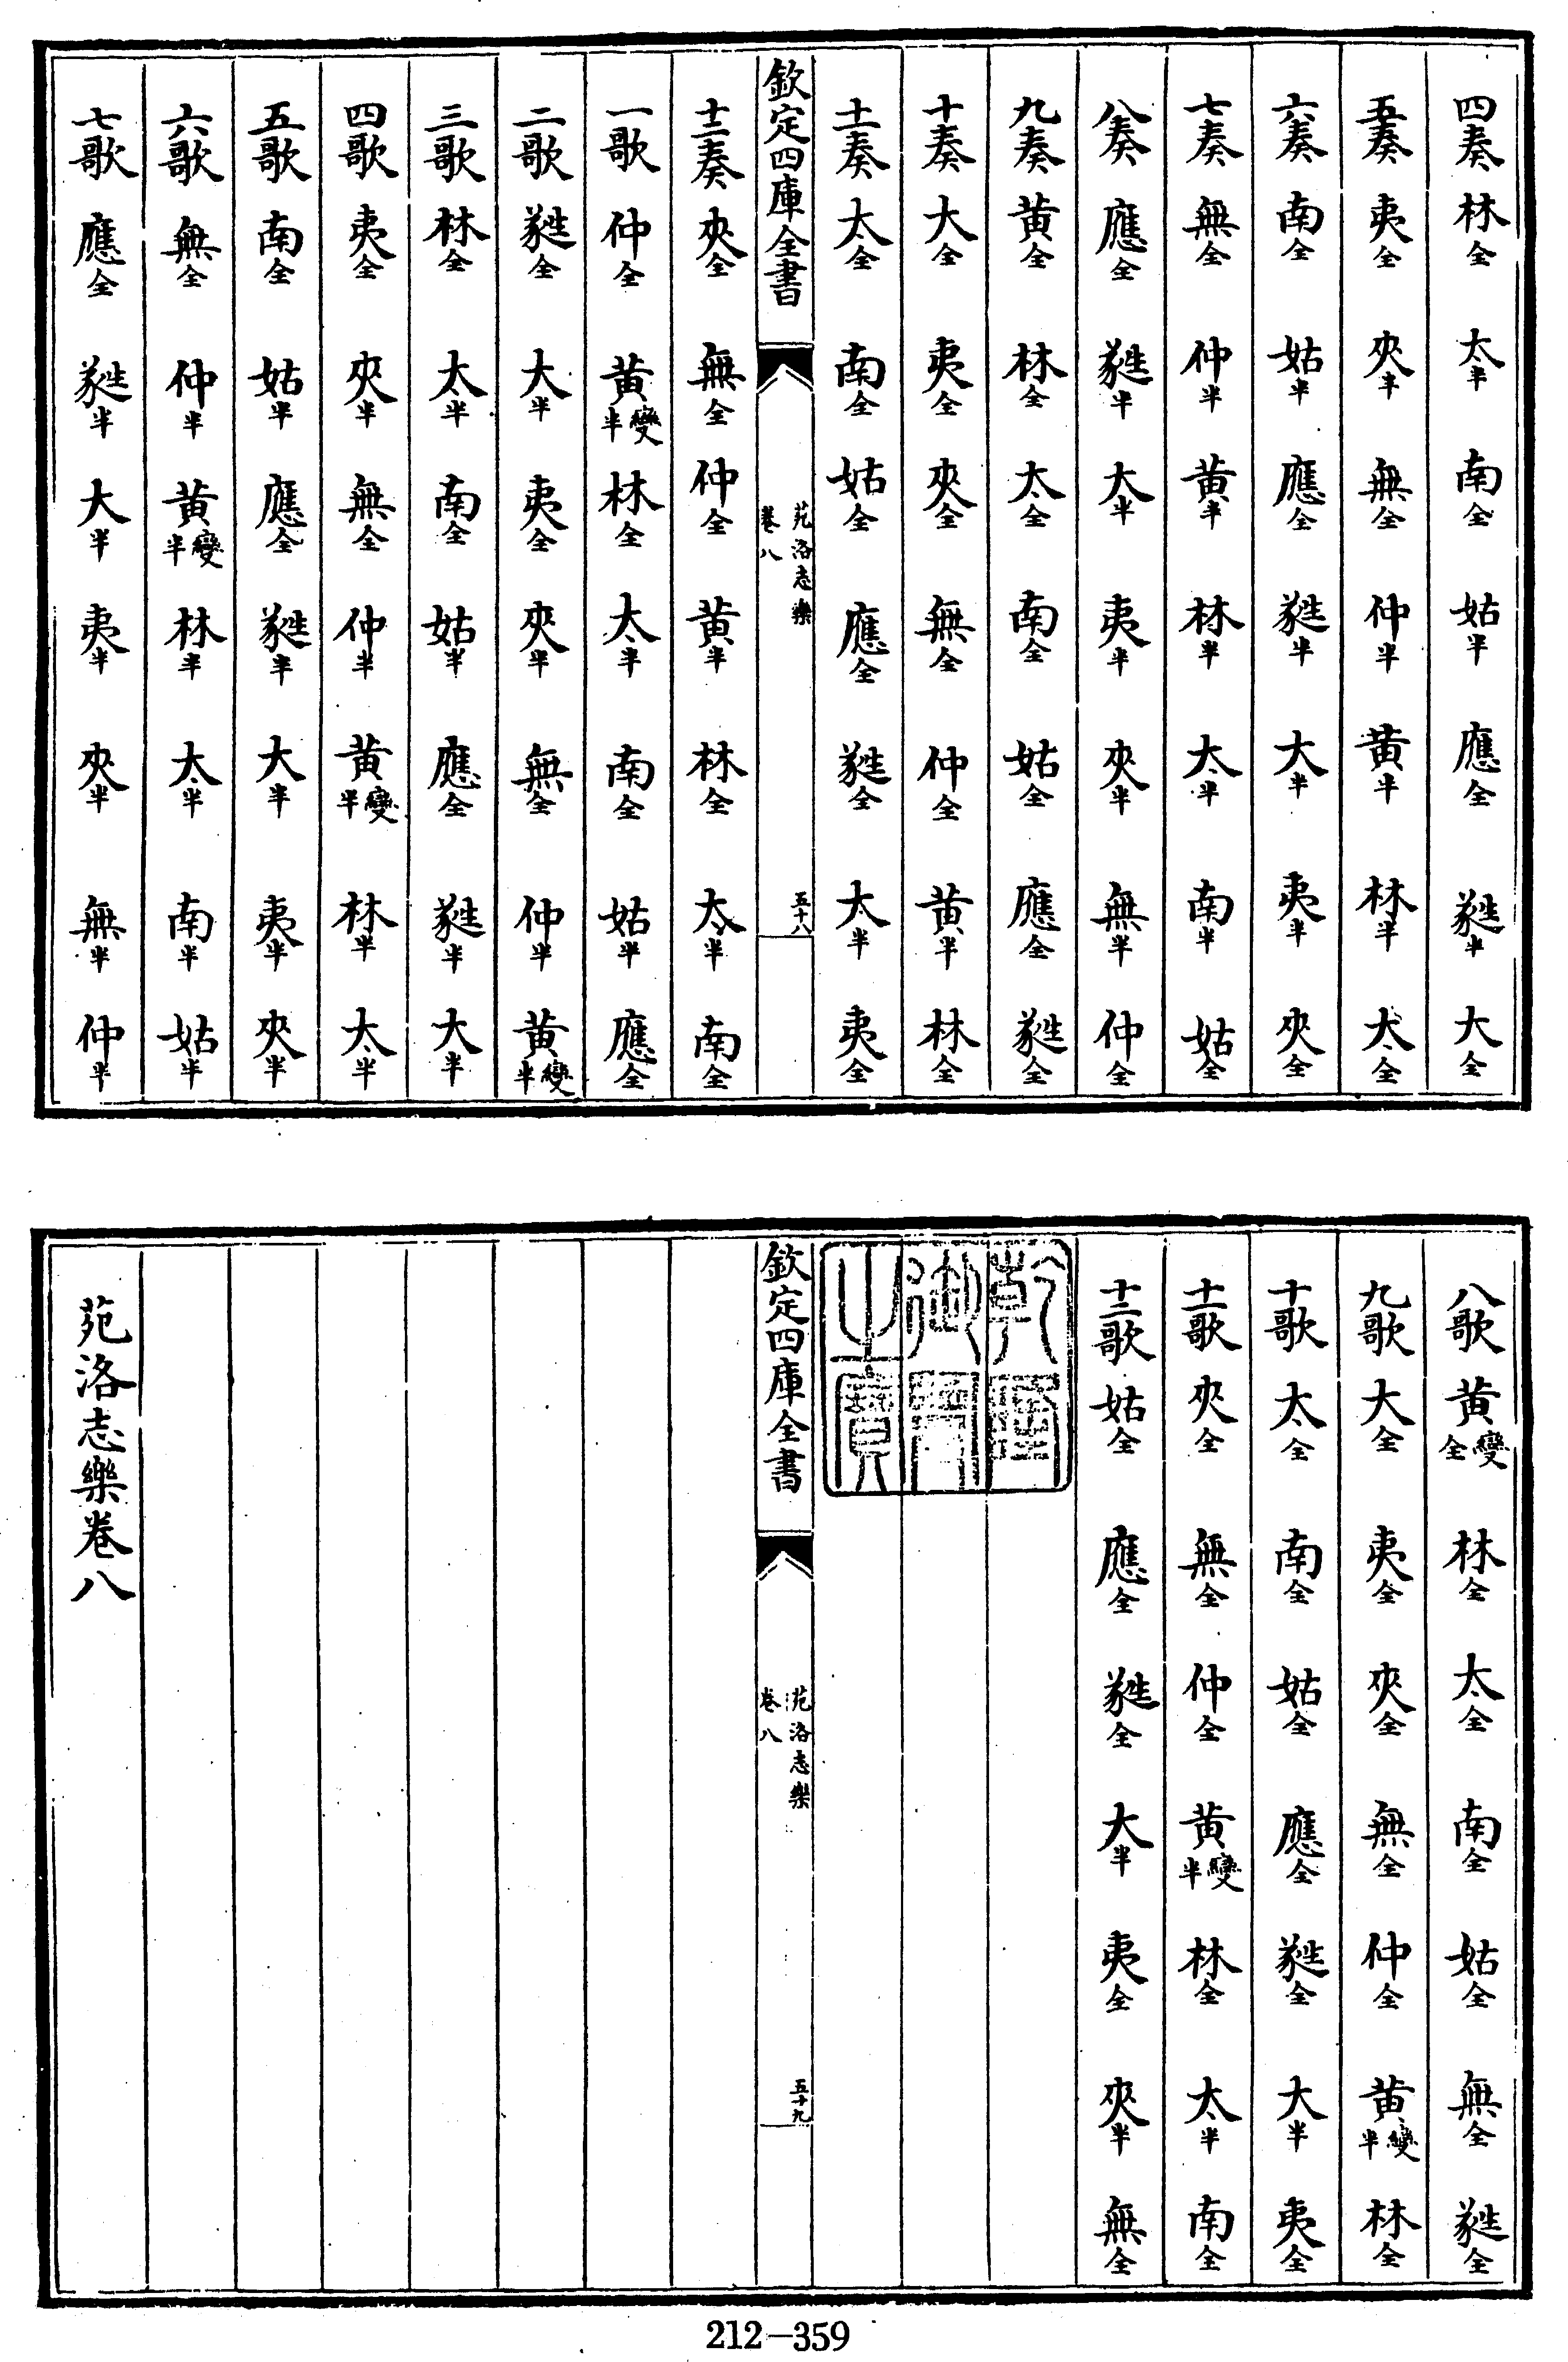 四奏 林全 太半 南全 姑半 應全 蕤半 大全
五奏 夷全 夾半 無全 仲半 黄半 林半 太全
六奏 南全 姑半 應全 蕤半 大半 夷半 夾全
七奏 無全 仲半 黄半 林半 太半 南半 姑全
八奏 應全 蕤半 大半 夷半 夾半 無半 仲全
九奏 黄全 林全 太全 南全 姑全 應全 蕤全
十奏 大全 夷全 夾全 無全 仲全 黄半 林全
十一奏 太全 南全 姑全 應全 蕤全 大半 夷全
欽定四庫全書
苑洛志樂
卷八
五十八
十二奏 夾全 無全 仲全 黄半 林全 太半 南全
一歌 仲全 黄變半 林全 太半 南全 姑半 應全
二歌 蕤全 大半 夷全 夾半 無全 仲半 黄變半
三歌 林全 太半 南全 姑半 應全 蕤半 大半
四歌 夷全 夾半 無全 仲半 黄變半 林半 太半
五歌 南全 姑半 應全 蕤半 大半 夷半 夾半
六歌 無全 仲半 黄變半 林半 太半 南半 姑半
七歌 應全 蕤半 大半 夷半 夾半 無半 仲半
八歌 黄變全 林全 太全 南全 姑全 無全 蕤全
九歌 大全 夷全 夾全 無全 仲全 黄變半 林全
十歌 太全 南全 姑全 應全 蕤全 大半 夷全
十一歌 夾全 無全 仲全 黄變半 林全 太半 南全
十二歌 姑全 應全 蕤全 大半 夷全 夾半 無全
乾隆御覽之寶
欽定四庫全書
苑洛志樂
卷八
五十九
苑洛志樂卷八
212-359